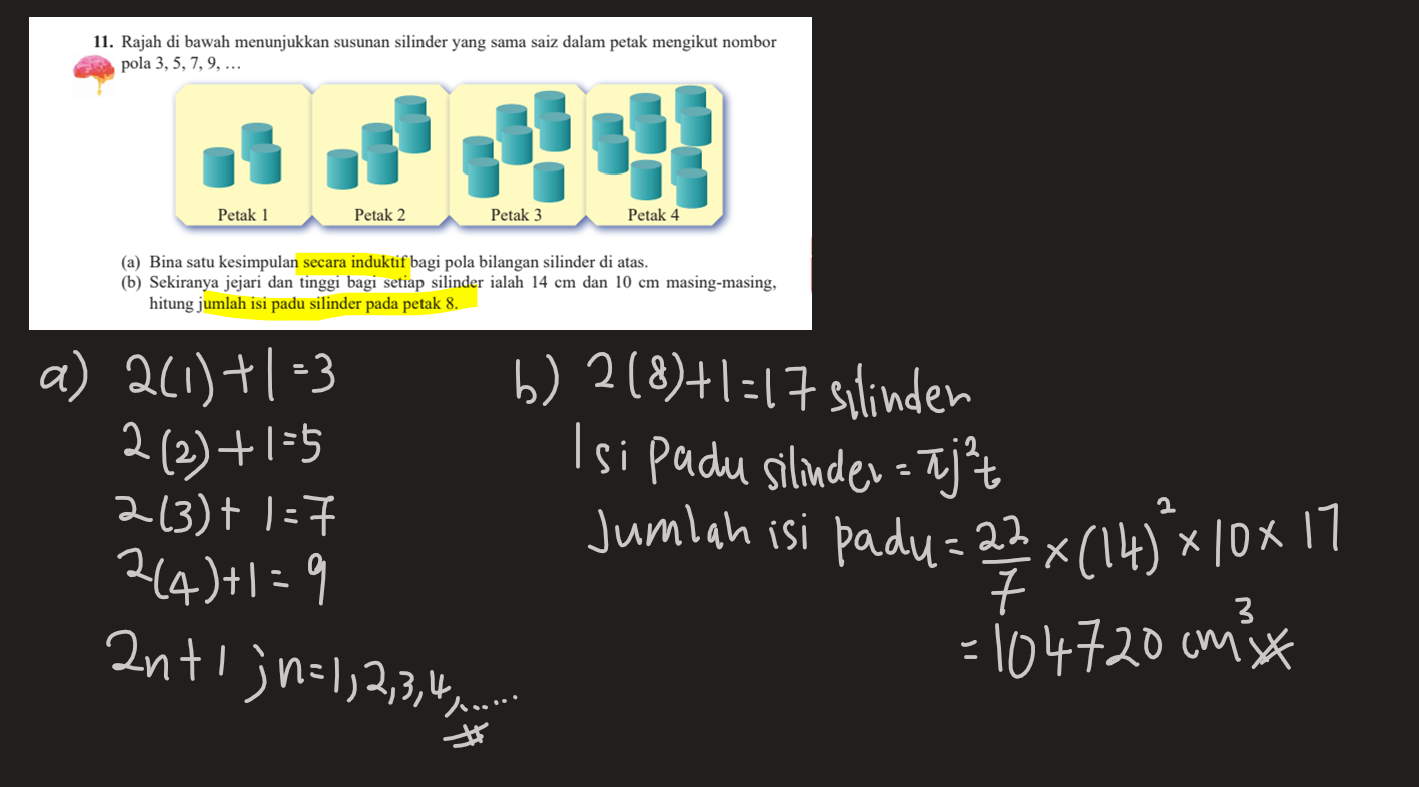 11. Rajah di bawah menunjukkan susunan silinder yang sama saiz dalam petak mengikut nombor
pola 3, 5, 7, 9, …
Petak 1
Petak 2
Petak 3
Petak 4
(a) Bina satu kesimpulan secara induktif bagi pola bilangan silinder di atas.
(b) Sekiranya jejari dan tinggi bagi setiap silinder ialah 14 cm dan 10 cm masing-masing,
hitung jumlah isi padu silinder pada petak 8.
a) 2(1)+1=3
2(2)+1=5
2(3)+1=7
2(4)+1=9
2n+1 ; n=1,2,3,4,......
b) 2(8)+1=17 silinder
Isi padu silinder = πj²t
Jumlah isi padu = 22/7 × (14)² × 10 × 17
= 104720 cm³